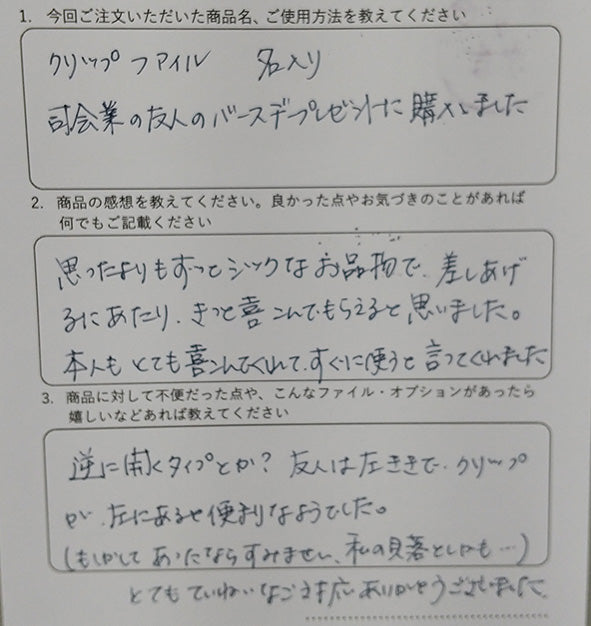 1. 今回ご注文いただいた商品名、ご使用方法を教えてください
クリップファイル 名入り
司会業の友人のバースデプレゼントに購入しました
2. 商品の感想を教えてください。良かった点やお気づきのことがあれば
何でもご記載ください
思ったよりもずっとシックなお品物で、差しあげ
るにあたり、きっと喜こんでもらえると思いました。
本人もとても喜こんでくれて、すぐに使うと言ってくれました
3. 商品に対して不便だった点や、こんなファイル・オプションがあったら
嬉しいなどあれば教えてください
逆に開くタイプとか？友人は左ききで、クリップ
が、左にあると便利なようでした。
(もしかしてあったならすみません、私の見落としかも…)
とてもていねいなご対応ありがとうございました